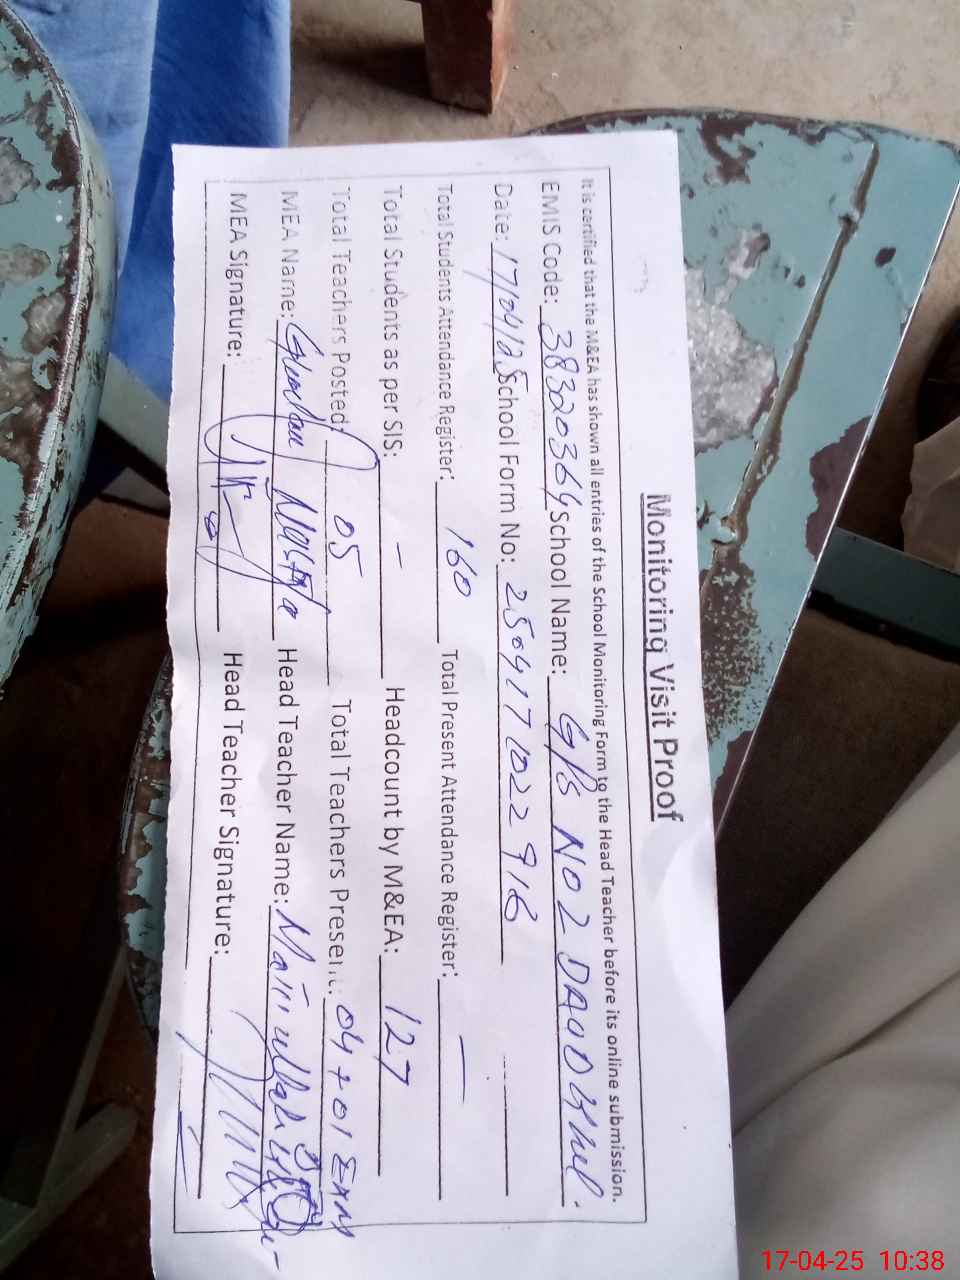 Monitoring Visit Proof
It is certified that the M&EA has shown all entries of the School Monitoring Form to the Head Teacher before its online submission.
EMIS Code: 38320364 School Name: G/PS NO 2 DAUD Khel.
Date: 17/04/25 School Form No: 250417 1022 916
Total Students Attendance Register: 160 Total Present Attendance Register: —
Total Students as per SIS: — Headcount by M&EA: 127
Total Teachers Posted: 05 Total Teachers Present: 04 + 01
MEA Name: Head Teacher Name:
MEA Signature: Head Teacher Signature:
17-04-25 10:38